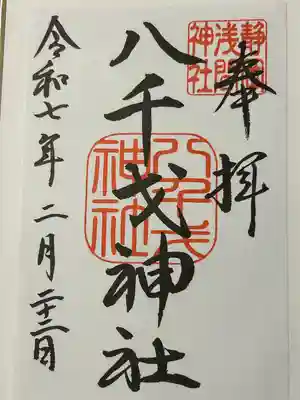 奉拝
静岡
浅間
神社
八千戈神社
八千戈
神社
令和七年二月二十二日